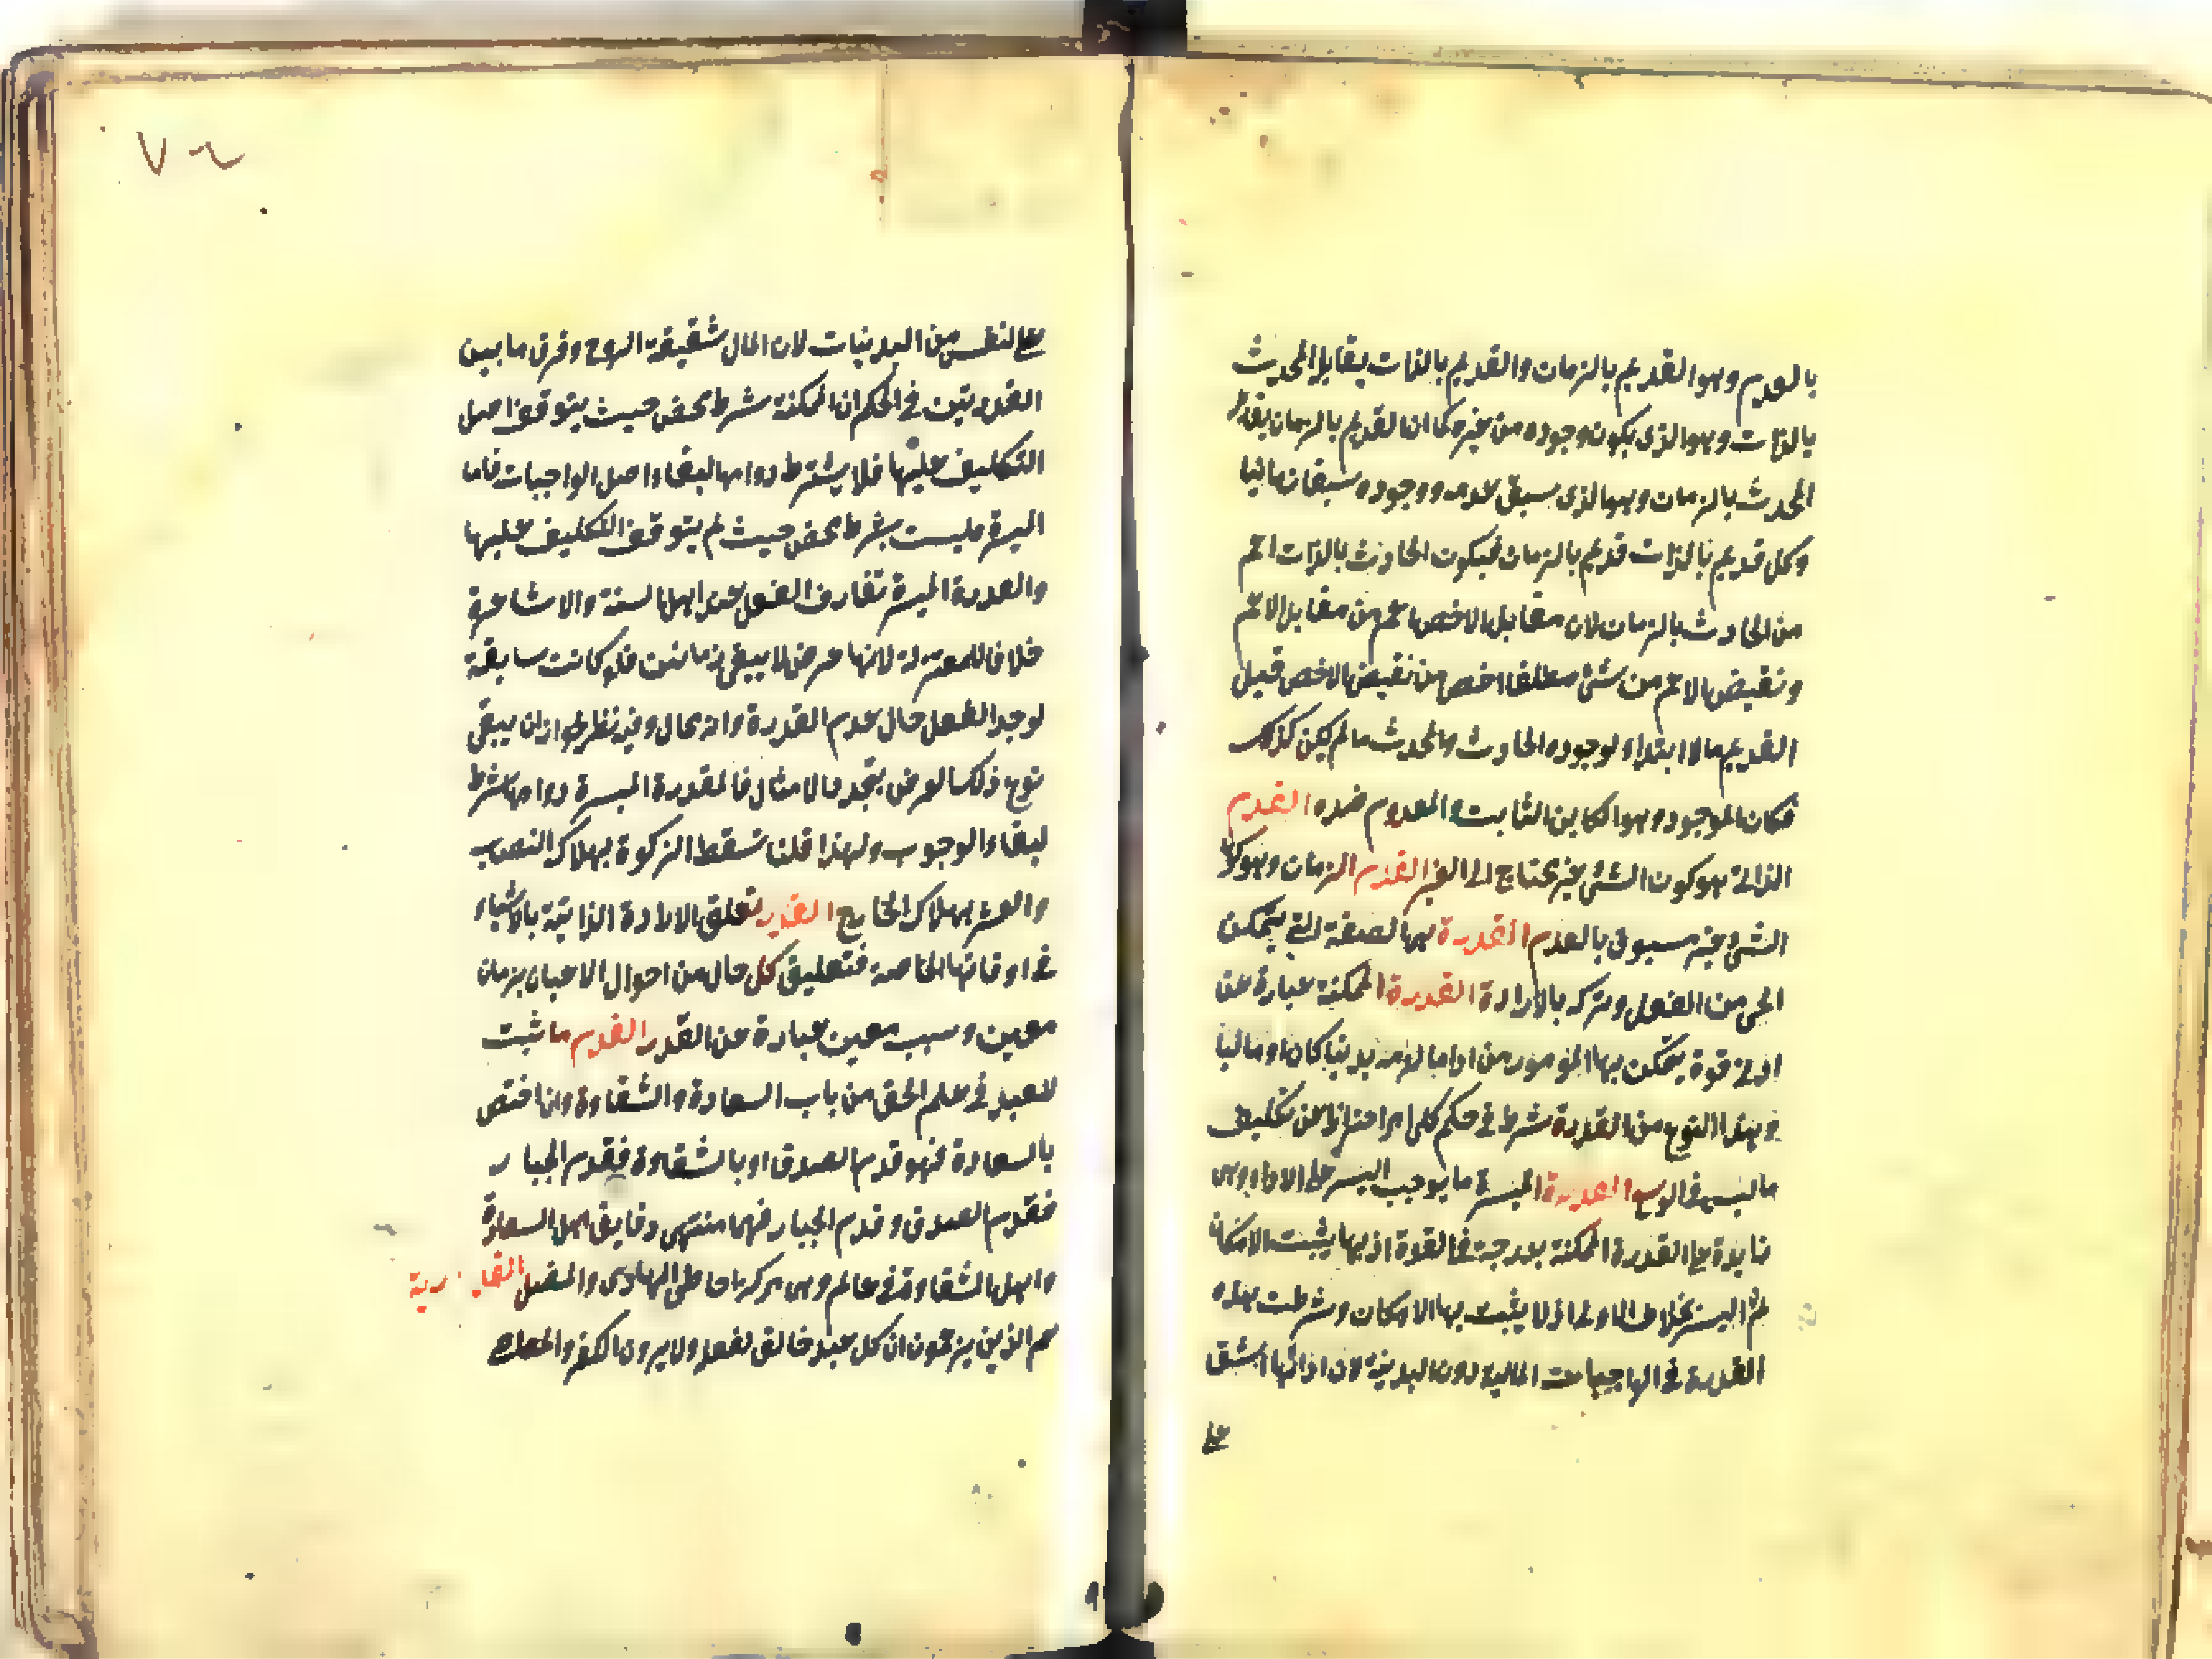 بالعدم وهو القديم بالزمان والقديم بالذات يقابل المحدث
بالذات وهو الذى يكون وجوده من غيره كما ان القديم بالزمان يقابل
المحدث بالزمان وهو الذى سبق عدمه وجوده سبقا زمانيا
وكل قديم بالذات قديم بالزمان فيكون الحادث بالذات اعم
من الحادث بالزمان لان مقابل الاخص اعم من مقابل الاعم
ونقيض الاعم من شئ مطلقا اخص من نقيض الاخص قيل
القديم ما لا ابتداء لوجوده الحادث والمحدث ما لم يكن كذلك
فكان الموجود وهو الكاين الثابت والمعدوم ضده القدم
الذاتى هو كون الشئ غير محتاج الى الغير القدم الزمان وهو كون
الشئ غير مسبوق بالعدم القدرة هى الصفة التى يتمكن
الحى من الفعل وتركه بالارادة القدرة الممكنة عبارة عن
ادنى قوة يتمكن بها المومور من اداء ما لزمه بدنيا كان او ماليا
وهذا النوع من القدرة شرط فى حكم كل امر احترازا عن تكليف
ما ليس فى الوسع القدرة الميسرة ما يوجب اليسر على الاداء وهى
زايدة على القدرة الممكنة بدرجة فى القوة اذ بها يثبت الامكان
ثم اليسر بخلاف الاولى اذ لا يثبت بها الامكان وشرطت هذه
القدرة فى الواجبات المالية دون البدنية لان اداءها اشق
على
٧٤
على النفس من البدنيات لان المال شقيقة الروح وفرق ما بين
القدرتين فى الحكم ان الممكنة شرط محض حيث يتوقف اصل
التكليف عليها فلا يشترط دوامها لبقاء اصل الواجبات فاما
الميسرة فليست بشرط محض حيث لم يتوقف التكليف عليها
والقدرة الميسرة تقارن الفعل عند اهل السنة والاشاعرة
خلافا للمعتزلة لانها عرض لا يبقى زمانين فلو كانت سابقة
لوجد الفعل حال عدم القدرة وانه محال وفيه نظر لجواز ان يبقى
نوع ذلك العرض بتجدد الامثال فالقدرة الميسرة دوامها شرط
لبقاء الوجوب ولهذا قلنا تسقط الزكوة بهلاك النصاب
والعشر بهلاك الخارج القدر تعلق الارادة الذاتية بالاشياء
فى اوقاتها الخاصة فتعليق كل حال من احوال الاعيان بزمان
معين وسبب معين عبارة عن القدر القدم ما ثبت
للعبد فى علم الحق من باب السعادة والشقاوة وان اختص
بالسعادة فهو قدم الصدق او بالشقاوة فقدم الجبار
فقدم الصدق وقدم الجبار فهما منتهى رقايق اهل السعادة
واهل الشقاوة فى عالم وهى مركز احاطى الهادى والمضل القدرية
هم الذين يزعمون ان كل عبد خالق لفعله ولا يرون الكفر والمعاصى